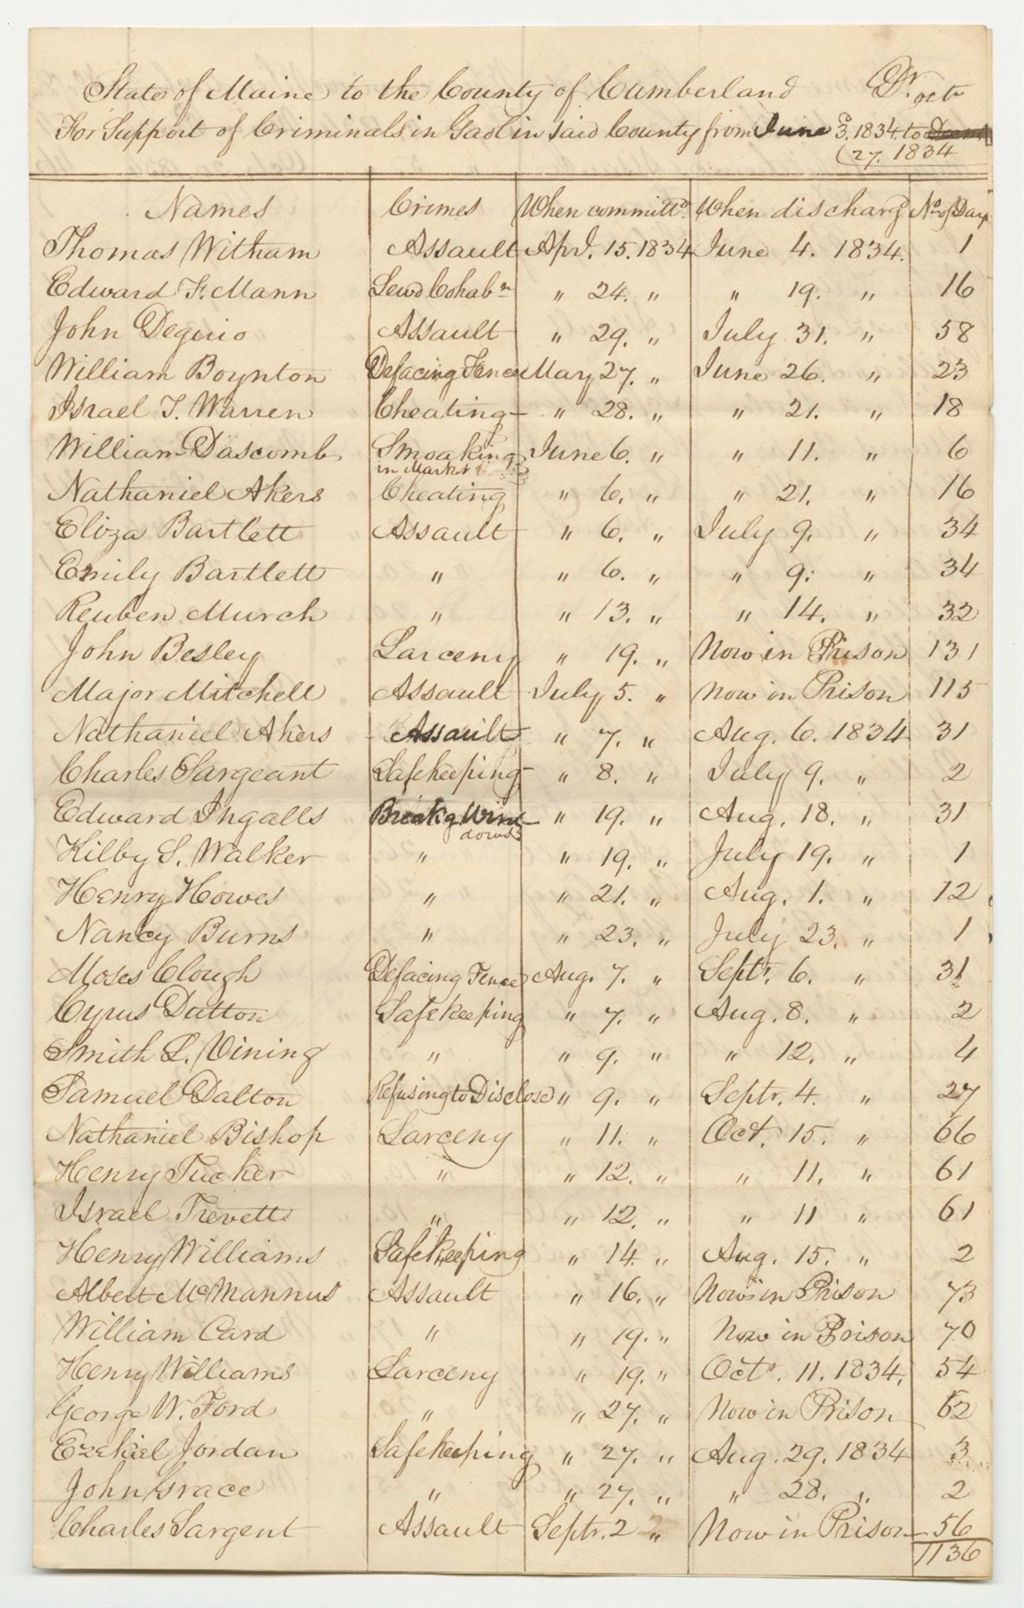 State of Maine to the County of Cumberland Dr.
For Support of Criminals in Gaol in said County from June 3. 1834 to Octr
(27. 1834
Names Crimes When committd. When dischargd No. of Days
Thomas Witham Assault Apl. 15. 1834 June 4. 1834. 1
Edward F. Mann Lewd Cohabn " 24. " " 19. " 16
John Deguio Assault " 29. " July 31. " 58
William Boynton Defacing Fence May 27. " June 26. " 23
Israel T. Warren Cheating " 28. " " 21. " 18
William Dascomb Smoaking June 6. " " 11. " 6
in Market
Nathaniel Akers Cheating " 6. " " 21. " 16
Eliza Bartlett Assault " 6. " July 9. " 34
Emily Bartlett " " 6. " " 9. " 34
Reuben Murch " " 13. " " 14. " 32
John Besley Larceny " 19. " Now in Prison 131
Major Mitchell Assault July 5. " Now in Prison 115
Nathaniel Akers Assault " 7. " Aug. 6. 1834 31
Charles Sargeant Safekeeping " 8. " July 9. " 2
Edward Ingalls Breakg Win- " 19. " Aug. 18. " 31
dows
Kilby S. Walker " " 19. " July 19. " 1
Henry Howes " " 21. " Aug. 1. " 12
Nancy Burns " " 23. " July 23. " 1
Moses Clough Defacing Fence Aug. 7. " Septr. 6. " 31
Cyrus Dutton Safekeeping " 7. " Aug. 8. " 2
Smith L. Vining " " 9. " " 12. " 4
Samuel Dalton Refusing to Disclose " 9. " Septr. 4. " 27
Nathaniel Bishop Larceny " 11. " Oct. 15. " 66
Henry Tucker " " 12. " " 11. " 61
Israel Trevett " " 12. " " 11 " 61
Henry Williams Safekeeping " 14. " Aug. 15. " 2
Albert McMannus Assault " 16. " Now in Prison 73
William Card " " 19. " Now in Prison 70
Henry Williams Larceny " 19. " Octr. 11. 1834. 54
George W. Ford " " 27. " Now in Prison 62
Ezekiel Jordan Safekeeping " 27. " Aug. 29. 1834 3
John Grace " " 27. " " 28. " 2
Charles Sargent Assault Septr. 2 " Now in Prison 56
1136